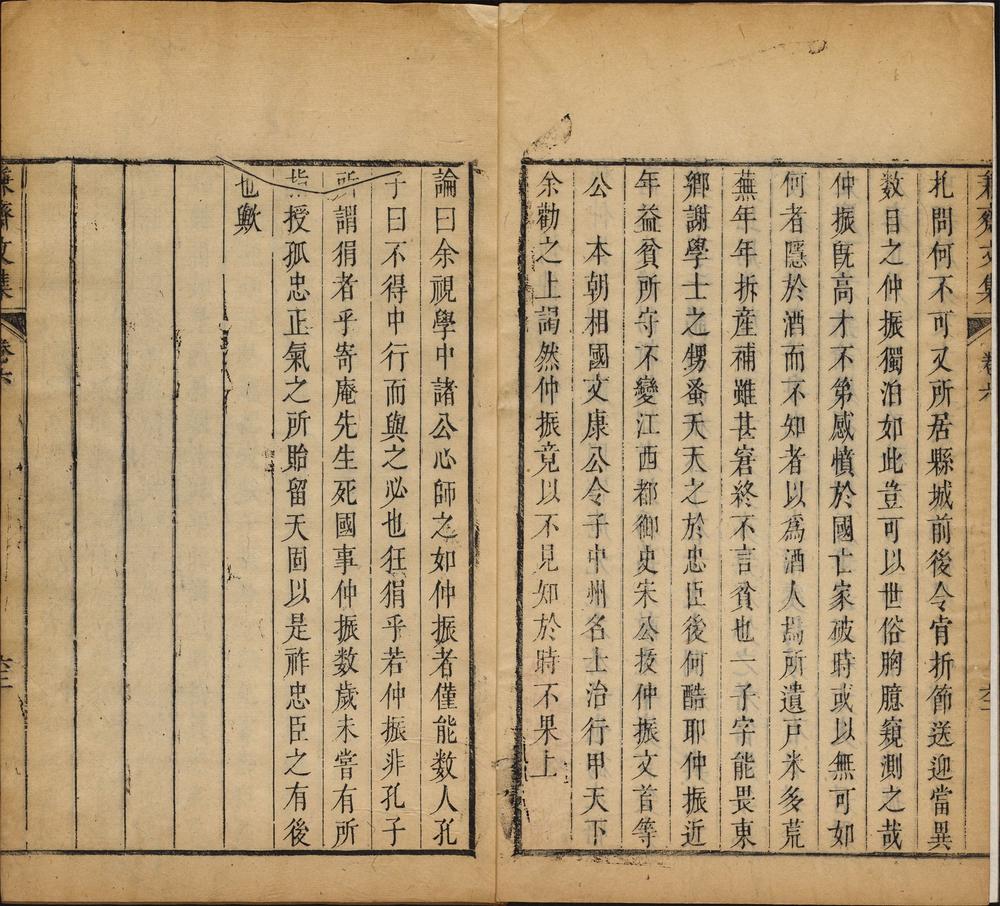 蒹齋文集
卷六
扎問何不可又所居縣城前後令肯折節送迎當異
数目之仲振獨泊如此豈可以世俗胸臆窺測之哉
仲振旣高才不第感憤於國亡家破時或以無可如
何者隱於酒而不知者以爲酒人焉所遺戸米多荒
蕪年年拆産補雖甚窘終不言貧也一子字能畏東
鄉謝學士之甥蚤夭天之於忠臣後何酷耶仲振近
年益貧所守不變江西都御史宋公投仲振文首等
公　本朝相國文康公令子中州名士治行甲天下
余勸之上謁然仲振竟以不見知於時不果上
論曰余視學中諸公心師之如仲振者僅能数人孔
子曰不得中行而與之必也狂狷乎若仲振非孔子
所謂狷者乎寄庵先生死國事仲振数歲未嘗有所
授孤忠正氣之所貽留天固以是祚忠臣之有後
也歟
齋文集
卷六